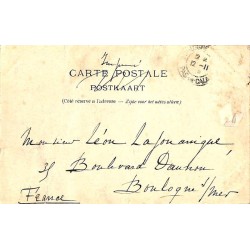 Imprimé
CARTE POSTALE
POSTKAART
(Côté réservé à l'adresse. — Zijde voor het adres alleen.)
Monsieur Léon
35 Boulevard Daunou
Boulogne s/mer
France